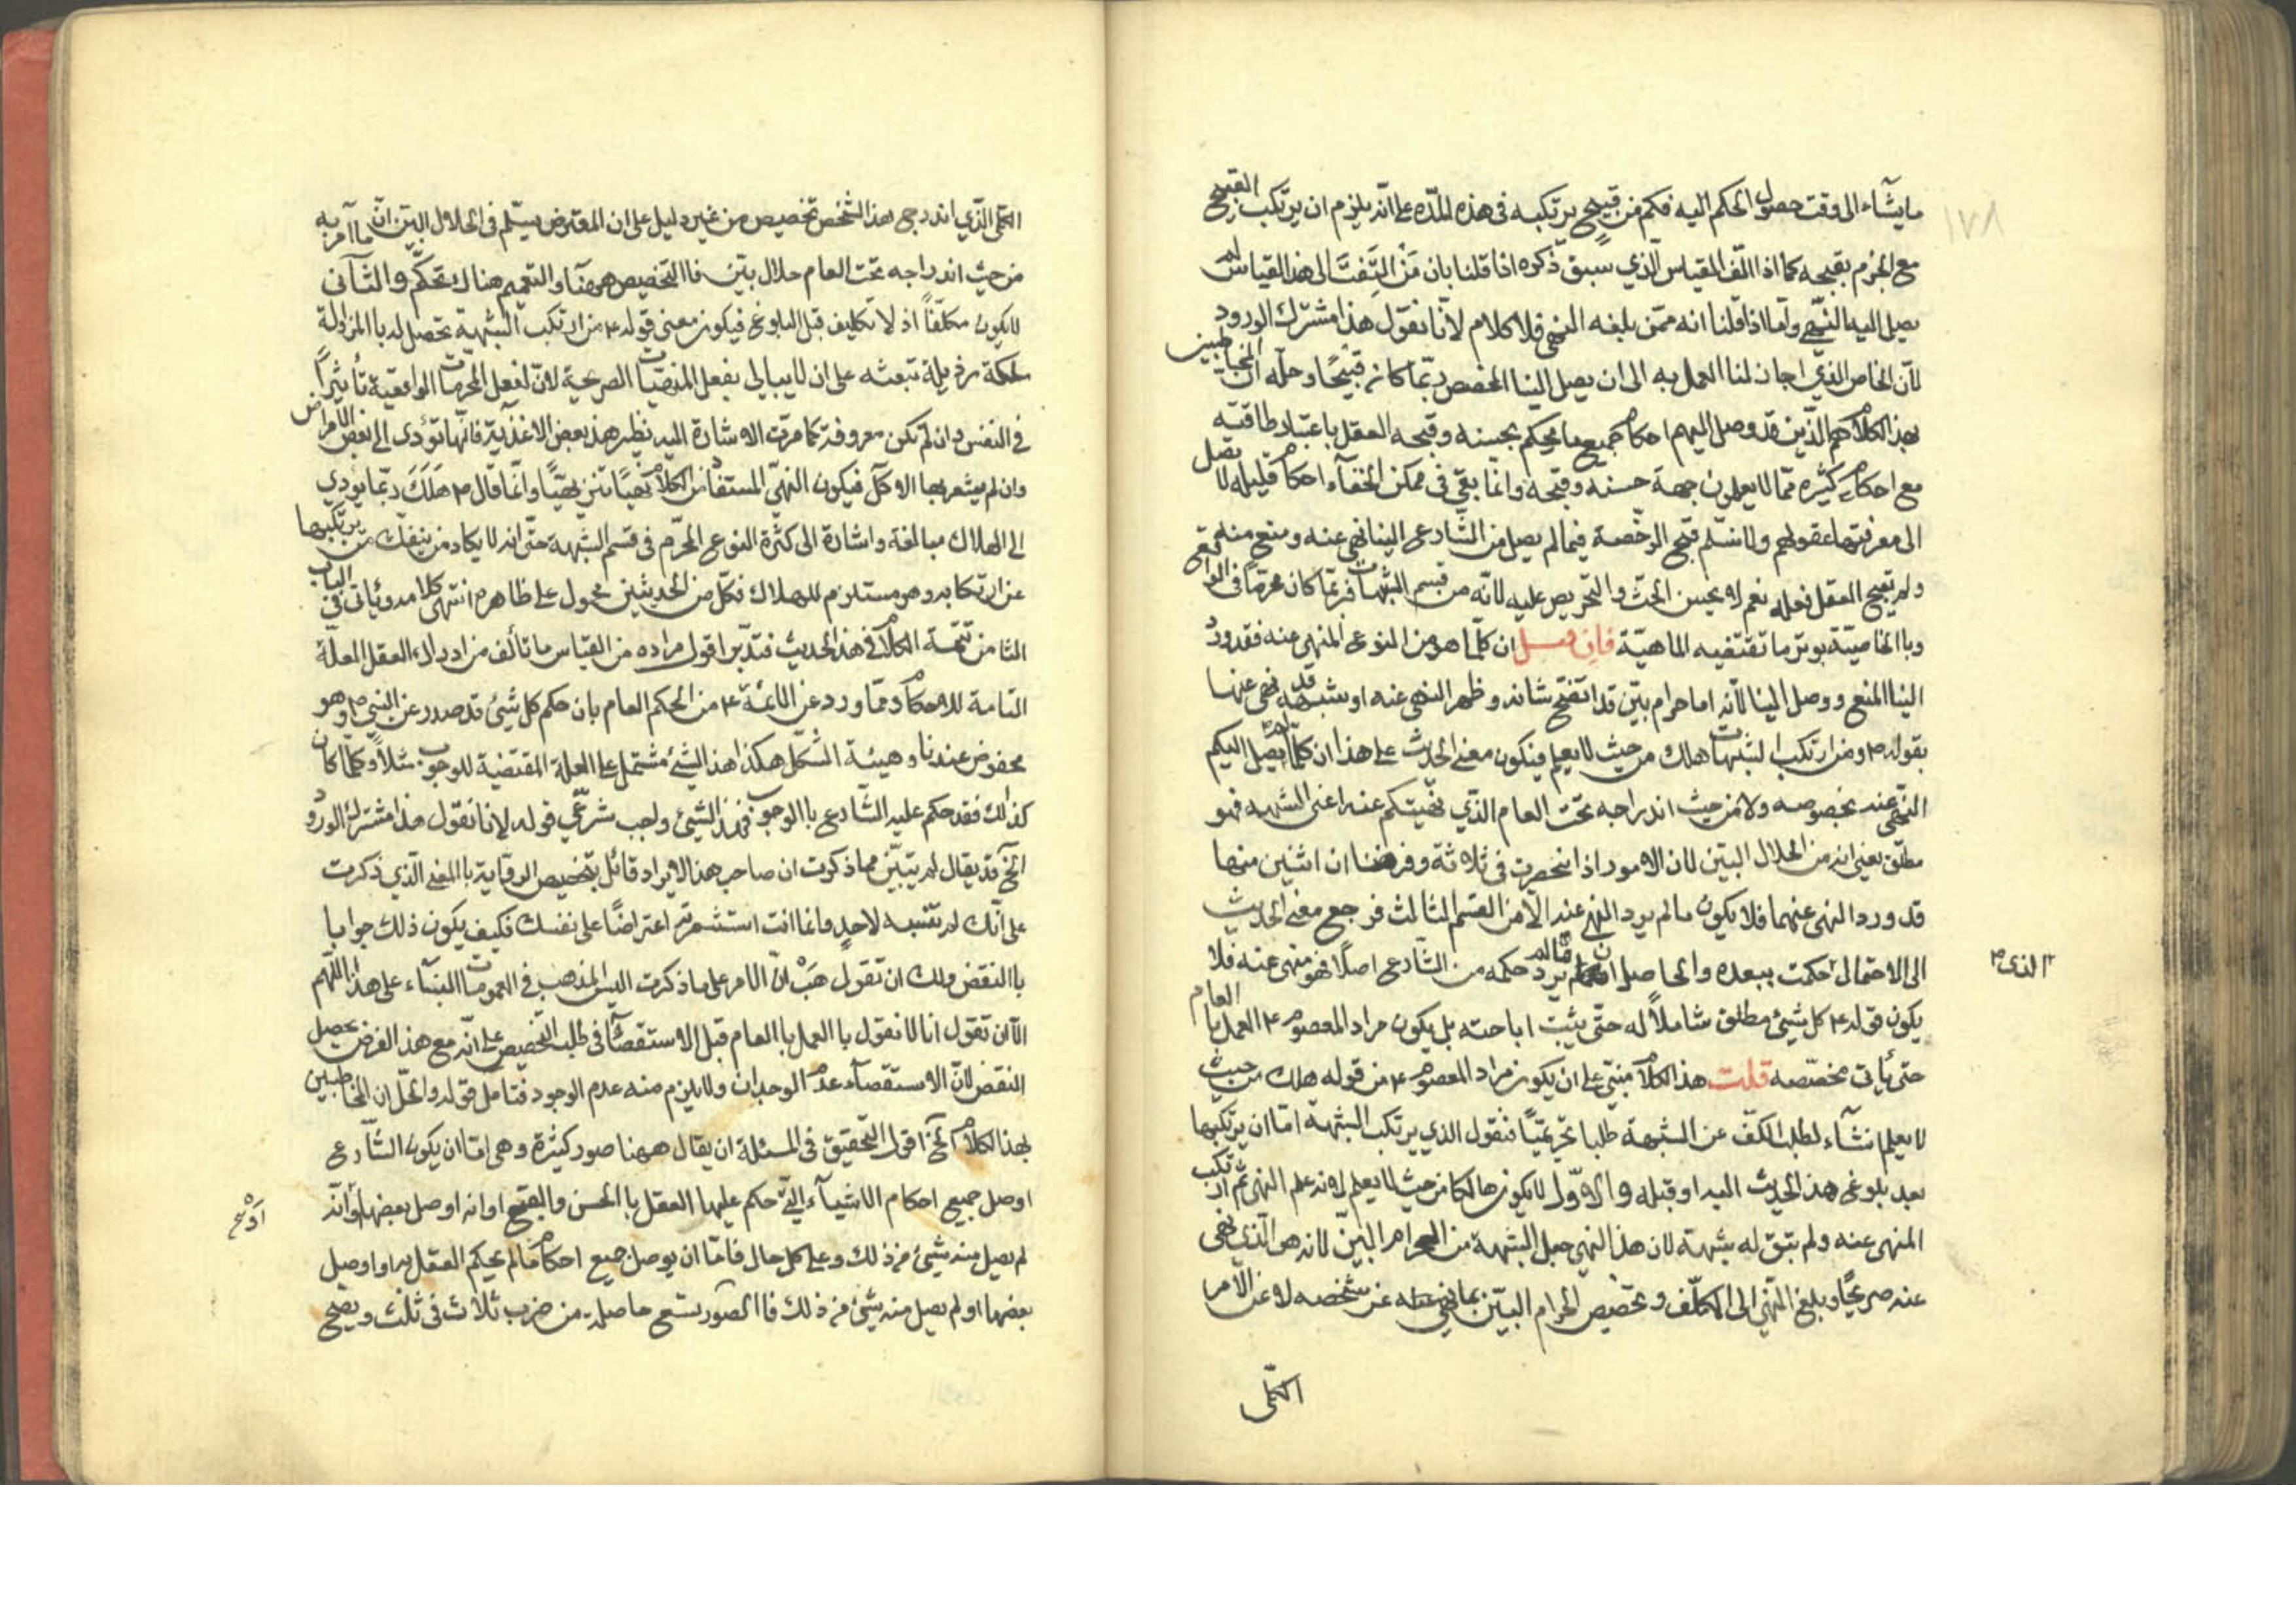 ١٧٨
ما يشاء الى وقت حصول الحكم اليه فكم من قبيح يرتكبه فى هذه المدّه على انّه يلزم ان يرتكب القبيح
مع الجزم بقبحه كما اذا الّف القياس الذي سبق ذكره اذا قلنا بان مَنْ التَفتَ الى هذا القياس لم
يصل اليه النّهي وامّا اذا قلنا انه ممّن بلغه النهى فلا كلام لأنّا نقول هذا مشترك الورود
لأنّ الخاص الذي اجاز لنا العمل به الى ان يصل الينا المخصص ربّما كان قبيحًا وحلّه انّ المخاطبين
بهذا الكلام هم الّذين قد وصل اليهم احكام جميع ما يحكم بحسنه وقبحه العقل باعتبار طاقته
مع احكام كثيره ممّا لا يعلمون جهة حسنه وقبحه وانما بقى فى ممكن الخفآء احكام قليله لا تصل
الى معرفتها عقولهم ولا نسلّم قبح الرخّصة فيما لم يصل من الشّارع الينا نهى عنه ومنع منه
ولم يقبح العقل فعله نعم لا يحسن الحثّ والتحريص عليه لأنّه من قسم الشبهات فربّما كان محرمًا فى الواقع
وبالخاصيّة يوثر ما تقتضيه الماهيّة فان قيل ان كلّما هو من النوع المنهى عنه فقد ورد
الينا المنع ووصل الينا لأنّه اما حرام بيّن قد اتّضح شانه وظهر النهى عنه او شبهه قد نهى عنها
بقوله ص ومن ارتكب الشبهات هلك من حيث لا يعلم فيكون معنى الحديث على هذا ان كلّما لم يصل اليكم
النّهى عنه بخصوصه ولا من حيث اندراجه تحت العام الذّي نهيتكم عنه اعنى الشبهه فهو
مطلق يعنى انه من الحلال البيّن لان الامور اذا انحصرت فى ثلاثة وفرضنا ان اثنين منها
قد ورد النهى عنهما فلا يكون ما لم يرد النهى عنه الّا من القسم الثالث فرجع معنى الحديث
الى الاحتمال الذى حكمت ببعده والحاصل ان ما لم يرد حكمه من الشّارع اصلًا فهو منهى عنه فلا
الذى
يكون قوله ع كل شئ مطلق شاملًا له حتّى يثبت اباحته بل يكون مراد المعصوم ع العمل بالعام
حتى يأتى مخصّصه قلت هذا الكلام مبنىّ على ان يكون مراد المعصوم ع من قوله هلك من حيث
لا يعلم انشآء لطلب الكفّ عن الشبهة طلبا تحريميّا فنقول الذي يرتكب الشبهة امّا ان يرتكبها
بعد بلوغ هذا الحديث اليه او قبله والاوّل لا يكون هالكا من حيث لا يعلم لانه علم النهى ثم ارتكب
المنهى عنه ولم يبق له شبهة لان هذا النهى جعل الشبهة من الحرام البيّن لانه هو الّذى نهى
عنه صريحًا وبلغ النهى الى المكلّف وتخصيص الحرام البيّن بما نهى عنه عن شخصه لا عن الأمر
الكلّى
الكلّى الذّي اندرج هذا الشّخص تخصيص من غير دليل على ان المفترض يسلّم فى الحلال البيّن انّ ما اَمر به
من حيث اندراجه تحت العام حلال بيّن فالتخصيص ههنا والتعميم هناك تحكّم والثآنى
لا يكون مكلّفًا اذ لا تكليف قبل البلوغ فيكون معنى قوله ع من ارتكب الشبهة تحصل له بالمزاولة
ملكة رذيلة تبعثه على ان لا يبالى بفعل المنهيّات الصريحة لانّ لفعل المحرمات الواقعيّة تأثيرًا
فى النفس وان لم تكن معروفة كما مرّت الاشارة اليه نظير هذا بعض الاغذية فانّها تؤدى الى بعض الأمراض
وان لم يشعر بها الاكل فيكون النهىّ المستفاد من الكلام نهيًا تنزيهيّا وانّما قال ص هَلَكَ ربّما يودى
الى الهلاك مبالغة واشارة الى كثرة النوع المحرّم فى قسم الشبهة حتّى انه لا يكاد من ينفك من يرتكبها
عن ارتكابه وهو مستلزم للهلاك فكلّ من الحديثين محمول على ظاهره انتهى كلامه وياتى فى الباب
الثامن تتمة الكلام فى هذا الحديث فتدبّر اقول مراده من القياس ما تألف من ادراك العقل العلّة
التامة للاحكام وممّا ورد عن الائمّة ع من الحكم العام بان حكم كل شئ قد صدر عن النبى ص وهو
محفوض عندنا وهيئة الشّكل هكذا هذا الشئ مشتمل على العلة المقتضية للوجوب مثلًا وكلّما كان
كذلك فقد حكم عليه الشّارع بالوجوب فهذا الشّئ واجب شرعّي قوله لانا نقول هذا مشترك الورود
آلخ قد يقال لم يتبيّن مما ذكرت ان صاحب هذا الايراد قائل بتخصيص الروايَة بالمعنى الّذي ذكرت
على انّك لم تنسبه لاحدٍ وانما انت استشعرته اعتراضًا على نفسك فكيف يكون ذلك جوابا
بالنقض ولك ان تقول هَبْ انّ الامر على ما ذكرت اليس المذهب فى العمومات البنآء على هذا اللّهم
الّا ان تقول انا لا نقول بالعمل بالعام قبل الاستقصآء فى طلب التخصيص على انّه مع هذا الفرض يحصل
النقض لانّ الاستقصآء عدم الوجدان ولا يلزم منه عدم الوجود فتامل قوله والحلّ ان المخاطبين
بهذا الكلام آلخ اقول التّحقيق فى المسئلة ان يقال ههنا صور كثيرة وهى امّا ان يكون الشّارع
اوصل جميع احكام الاشيآء الّتى حكم عليها العقل بالحسن والقبح او انه اوصل بعضها او انّه
لم يصل منه شيئ من ذلك وعلى كل حال فامّا ان يوصل جميع احكام ما لم يحكم العقل به او اوصل
بعضها او لم يصل منه شئ من ذلك فالصّور تسع حاصلة من ضرب ثلاث فى ثلث ويصّح